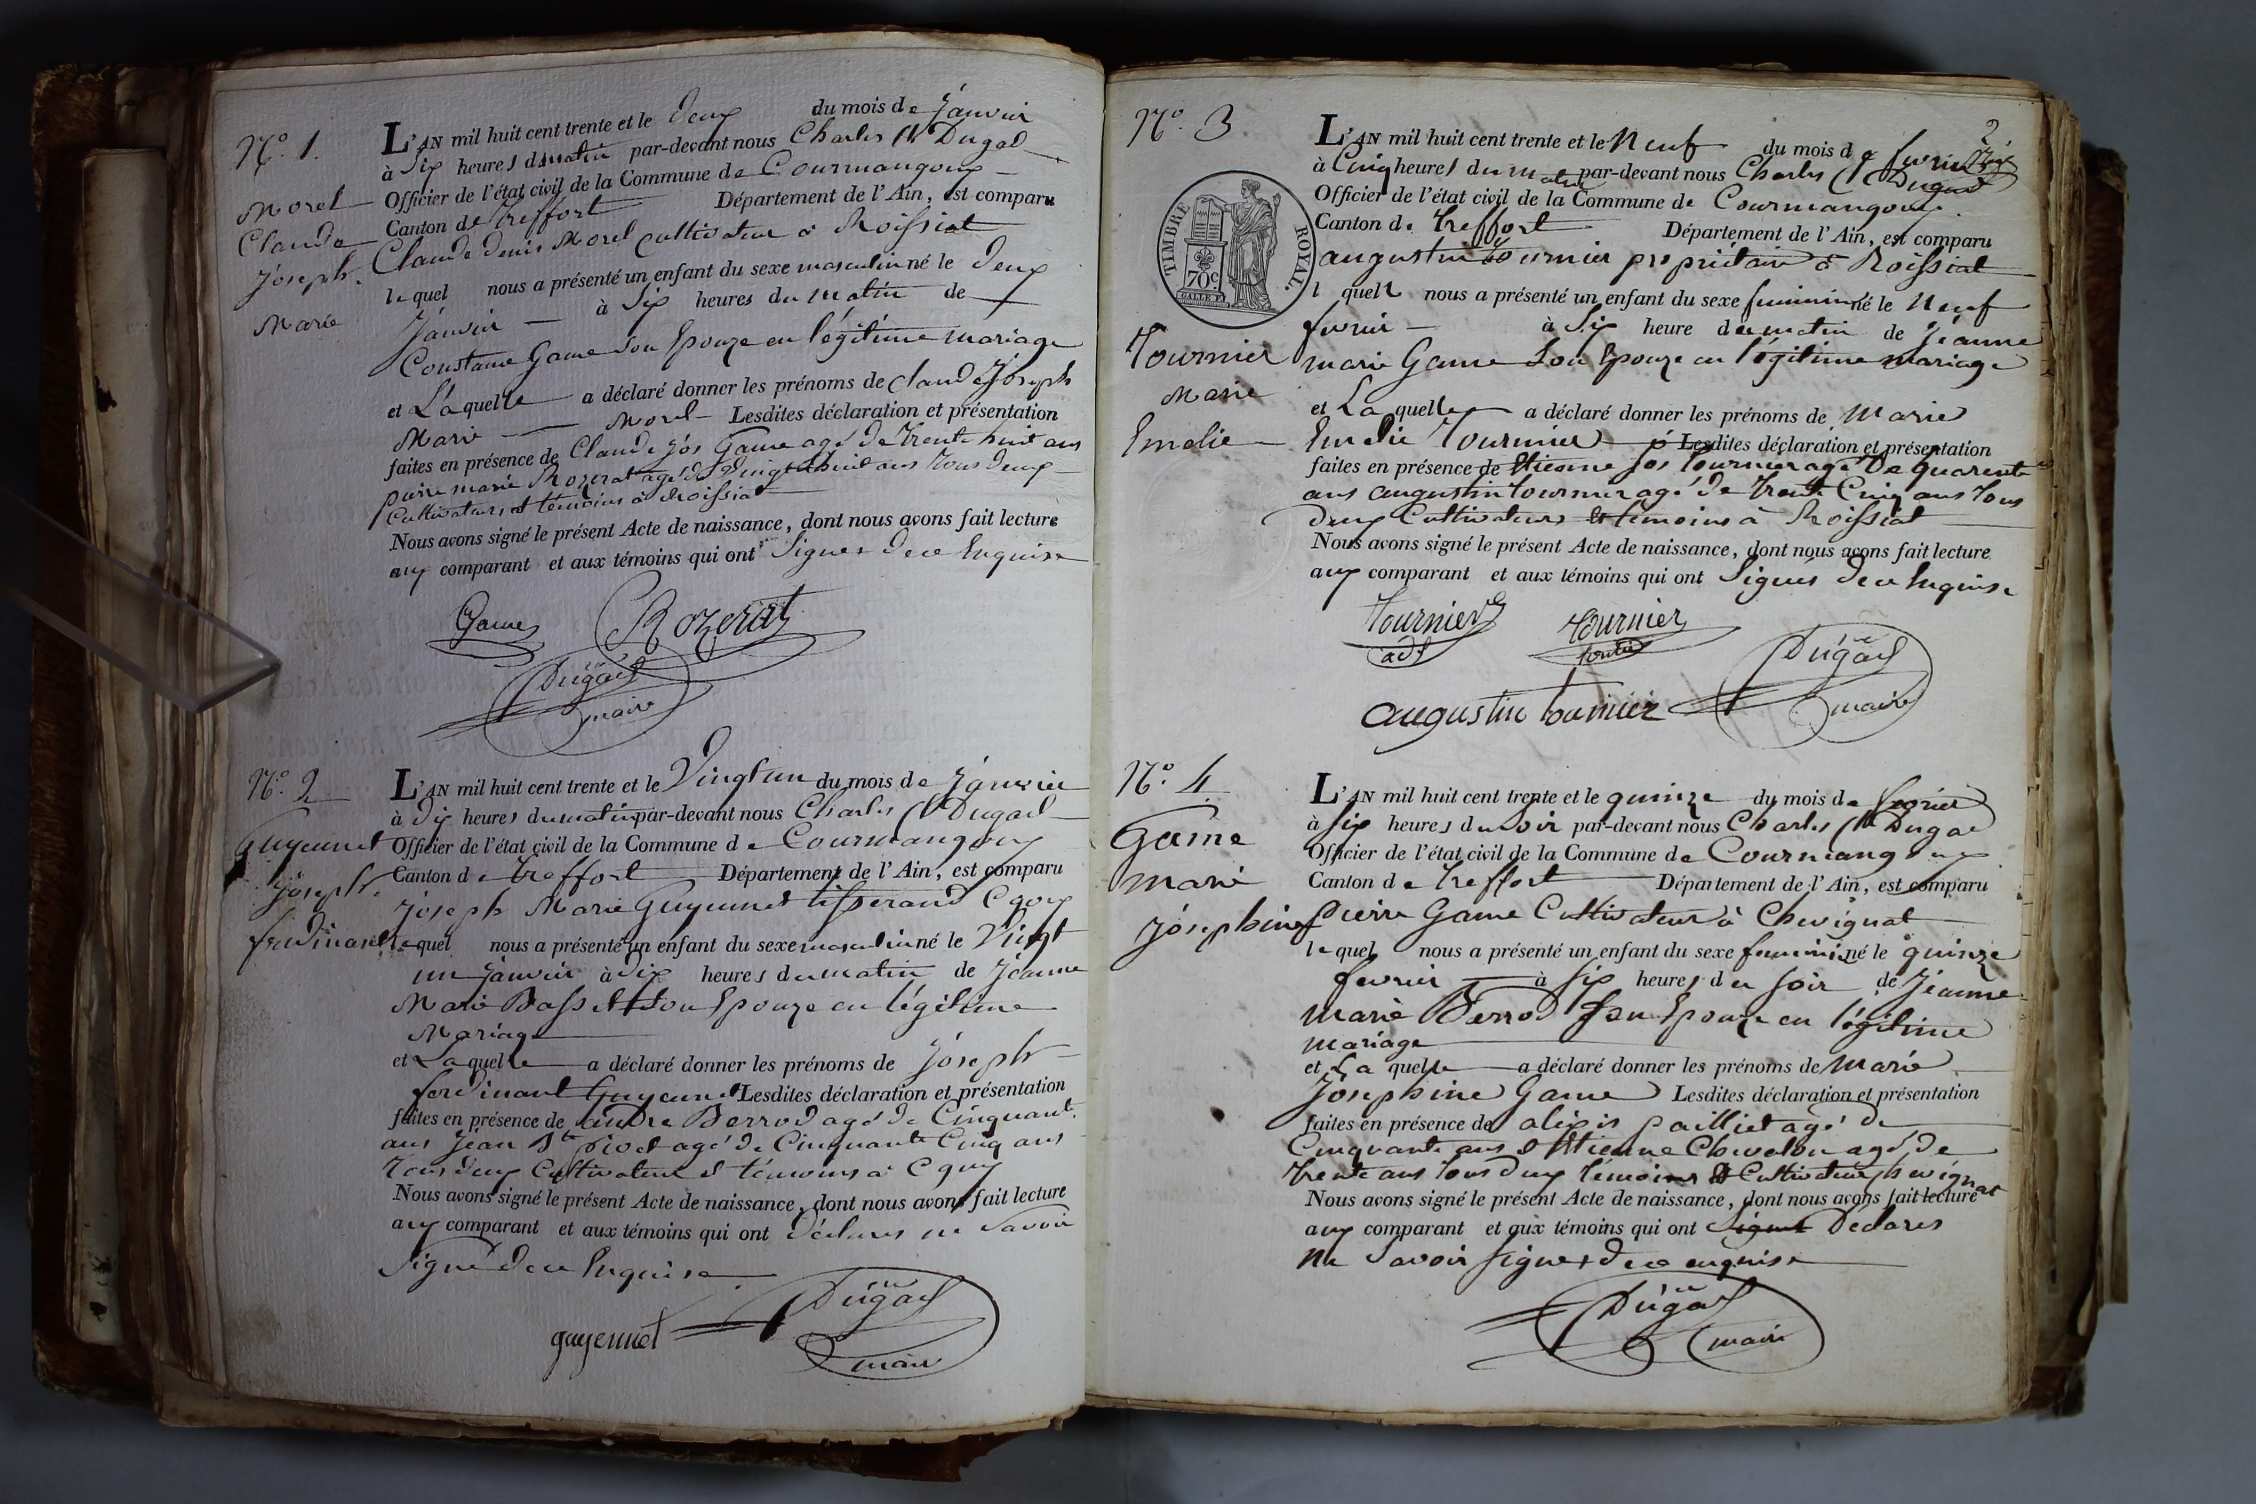 N.° 1.
Morel
Claude
Joseph
Marie
L'AN mil huit cent trente et le deux du mois de Janvier
à Six heures du matin par-devant nous Charles Dugad
Officier de l'état civil de la Commune de Courmangoux
Canton de treffort Département de l'Ain, est comparu
Claude denis Morel Cultivateur à Roissiat
lequel nous a présenté un enfant du sexe masculin né le deux
Janvier à Six heures du matin de
Constance Game Son Epouze en légitime mariage
et Laquelle a déclaré donner les prénoms de claude Joseph
Marie Morel Lesdites déclaration et présentation
faites en présence de Claude Jos Game agé de trente huit ans
pierre marie Rozerat agé de Vingt huit ans tous deux
Cultivateurs et témoins à Roissiat
Nous avons signé le présent Acte de naissance, dont nous avons fait lecture
aux comparant et aux témoins qui ont Signer de ce Enquise
Game Rozerat
Dugad
maire
N.° 2
Guyennet
Joseph
ferdinand
L'AN mil huit cent trente et le Vingt un du mois de Janvier
à dix heures du matin par-devant nous Charles Dugad
Officier de l'état civil de la Commune de Courmangoux
Canton de treffort Département de l'Ain, est comparu
Joseph Marie Guyennet tisserand Cgoux
lequel nous a présenté un enfant du sexe masculin né le Vingt
un Janvier à dix heures du matin de Jeanne
Marie Basset Son Epouze en légitime
Mariage
et Laquelle a déclaré donner les prénoms de Joseph
ferdinant Guyennet Lesdites déclaration et présentation
faites en présence de andre Berrod agé de Cinquante
ans Jean Bte pivet agé de Cinquante Cinq ans
tous deux Cultivateur et témoins à Cgoux
Nous avons signé le présent Acte de naissance, dont nous avons fait lecture
aux comparant et aux témoins qui ont déclarés ne Savoir
Signé de ce Enquise
guyennet
Dugad
maire
2
N.° 3
TIMBRE ROYAL.
70c
Tournier
Marie
Emelie
L'AN mil huit cent trente et le Neuf du mois de fevrier
à Cinq heures du matin par-devant nous Charles Dugad
Officier de l'état civil de la Commune de Courmangoux
Canton de treffort Département de l'Ain, est comparu
augustin tournier propriétaire à Roissiat
lequel nous a présenté un enfant du sexe feminin né le Neuf
fevrier à Six heure du matin de Jeanne
marie Game Son Epouze en légitime mariage
et La quelle a déclaré donner les prénoms de Marie
Emelie Tournier Lesdites déclaration et présentation
faites en présence de Etienne Jos tournier agé de quarente
ans augustin tournier agé de trente Cinq ans tous
deux Cultivateurs et témoins à Roissiat
Nous avons signé le présent Acte de naissance, dont nous avons fait lecture
aux comparant et aux témoins qui ont Signés de ce Enquise
tournier tournier
adj
augustin tournier
Dugad
maire
N.° 4
Game
marie
Josephine
L'AN mil huit cent trente et le quinze du mois de fevrier
à Six heures du soir par-devant nous Charles Dugad
Officier de l'état civil de la Commune de Courmangoux
Canton de treffort Département de l'Ain, est comparu
pierre Game Cultivateur à Chevignat
lequel nous a présenté un enfant du sexe feminin né le quinze
fevrier à Six heures du soir de Jeanne
Marie Berrod Son Epouze en légitime
mariage
et La quelle a déclaré donner les prénoms de Marie
Josephine Game Lesdites déclaration et présentation
faites en présence de alexis paillet agé de
Cinquante ans et Etienne Chevelon agé de
trente ans tous deux témoins et Cultivateur chevignat
Nous avons signé le présent Acte de naissance, dont nous avons fait lecture
aux comparant et aux témoins qui ont Signé Declarés
Ne Savoir Signer de ce enquise
Dugad
maire